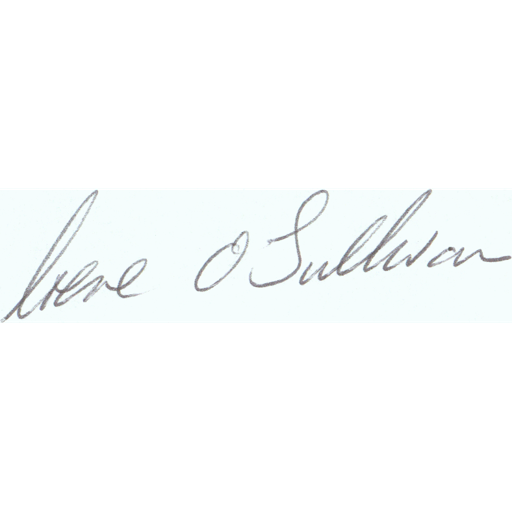 Irene O'Sullivan